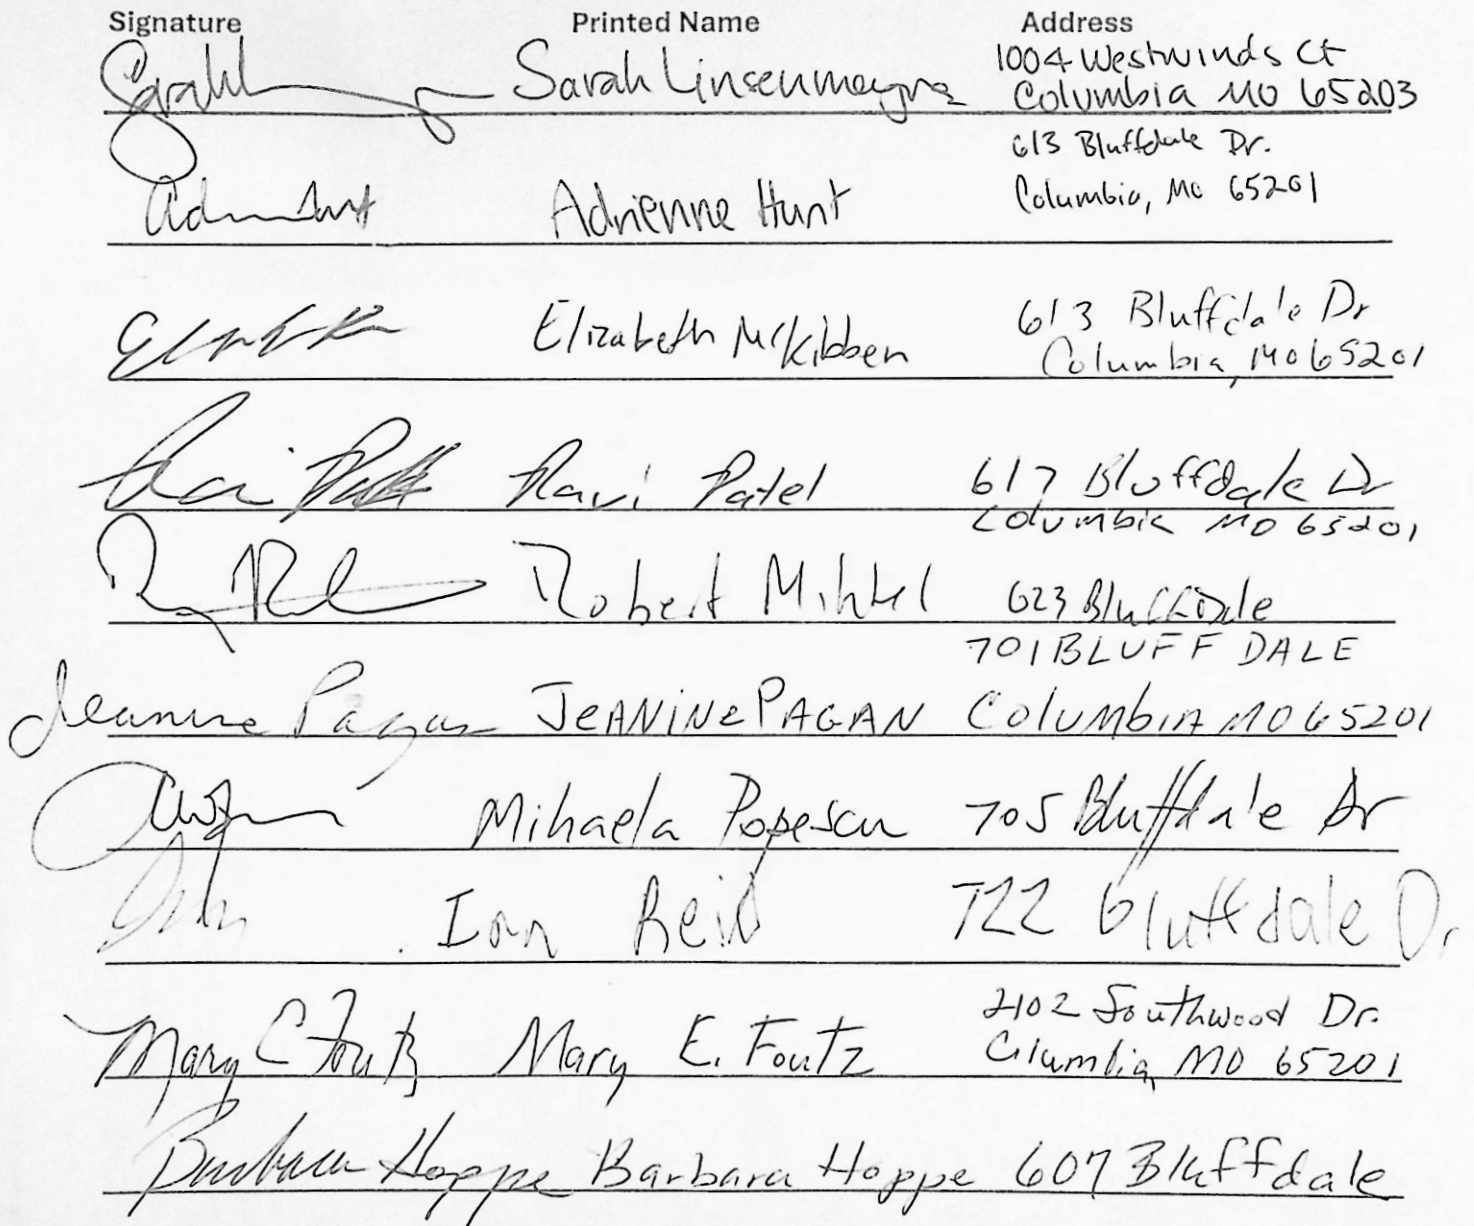 Signature Printed Name Address
Sarah Linsenmayer 1004 Westwinds Ct
Columbia MO 65203
613 Bluffdale Dr.
Adrienne Hunt Columbia, MO 65201
Elizabeth McKibben 613 Bluffdale Dr
Columbia, MO 65201
Ravi Patel Ravi Patel 617 Bluffdale Dr
Columbia MO 65201
Robert 623 Bluffdale
701 BLUFF DALE
Jeanine Pagan JEANINE PAGAN Columbia MO 65201
Mihaela Popescu 705 Bluffdale Dr
Ian Reid 722 Bluffdale Dr
2102 Southwood Dr.
Mary E Foutz Mary E. Foutz Columbia, MO 65201
Barbara Hoppe Barbara Hoppe 607 Bluffdale